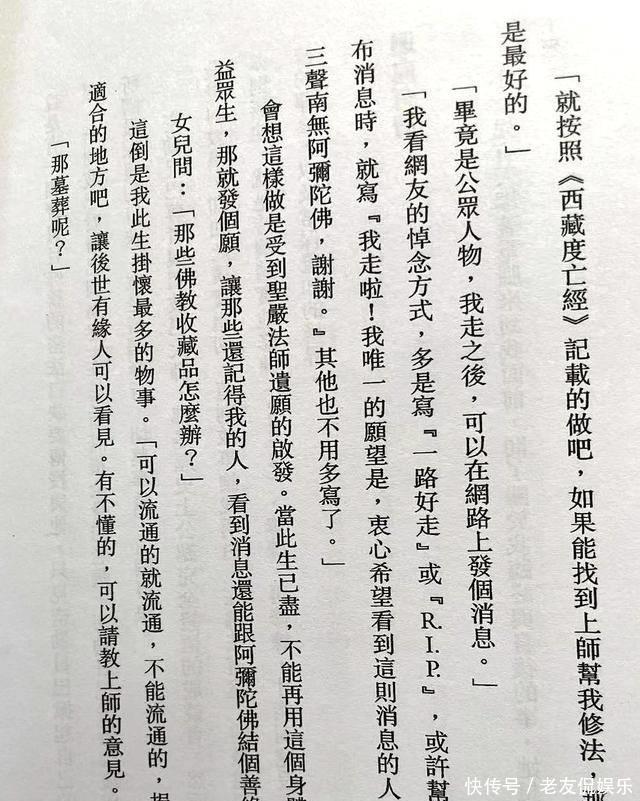 「就按照《西藏度亡經》記載的做吧，如果能找到上師幫我修法，
是最好的。」
「畢竟是公眾人物，我走之後，可以在網路上發個消息。」
「我看網友的悼念方式，多是寫『一路好走』或『R.I.P.』，或許幫
布消息時，就寫『我走啦！我唯一的願望是，衷心希望看到這則消息的人
三聲南無阿彌陀佛，謝謝。』其他也不用多寫了。」
會想這樣做是受到聖嚴法師遺願的啟發。當此生已盡，不能再用這個身體
益眾生，那就發個願，讓那些還記得我的人，看到消息還能跟阿彌陀佛結個善
女兒問：「那些佛教收藏品怎麼辦？」
這倒是我此生掛懷最多的物事。「可以流通的就流通，不能流通的，
適合的地方吧，讓後世有緣人可以看見。有不懂的，可以請教上師的意見。
「那墓葬呢？」
快传号／老友侃娱乐